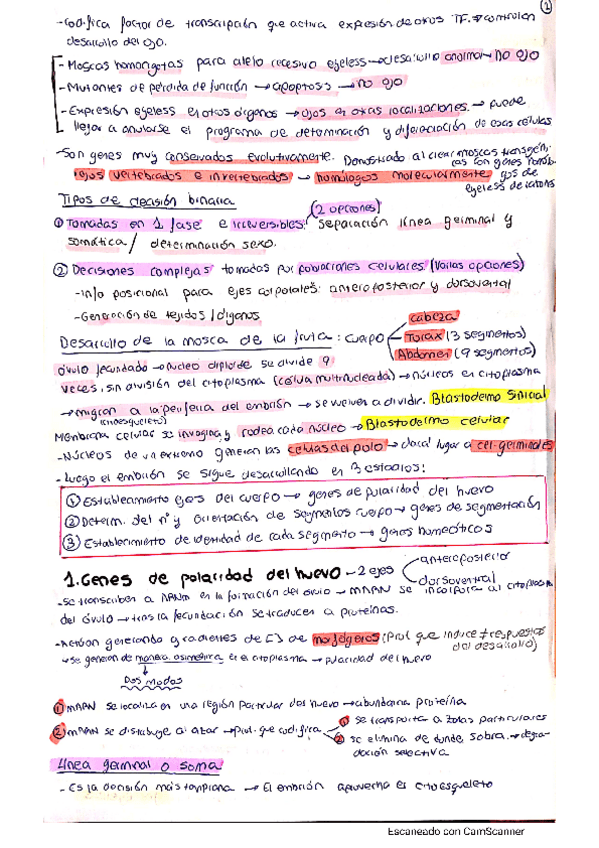 ①
-codifica factor de transcripción que activa expresión de otros TF. → controlan
desarrollo del ojo.
- Moscas homogotas para alelo recesivo eyeless → desarrollo anormal → no ojo
- Mutantes de pérdida de función → apoptosis → no ojo
- Expresión eyeless en otros órganos → ojos en otras localizaciones. → puede
llegar a anularse el programa de determinación y diferenciación de esas células
-Son genes muy conservados evolutivamente. Demostrado al crear moscas transgén-
icas con genes
ojos vertebrados e invertebrados → homólogos molecularmente
eyeless de ratones
Tipos de decisión binaria
(2 opciones)
① Tomadas en 1 fase e irreversibles: separación línea germinal y
somática / determinación sexo.
② Decisiones complejas tomadas por poblaciones celulares (varias opciones)
-Info posicional para ejes corporales: anteroposterior y dorsoventral
-Generación de tejidos / órganos
Desarrollo de la mosca de la fruta: cuerpo
cabeza
Torax (3 segmentos)
Abdomen (9 segmentos)
óvulo fecundado → núcleo diploide se divide 9
veces, sin división del citoplasma (célula multinucleada) → núcleos en citoplasma
→ migran a la periferia del embrión → se vuelven a dividir. Blastodermo sincitial
(citoesqueleto)
Membrana celular se invagina y rodea cada núcleo → Blastodermo celular
-Núcleos de un extremo generan las células del polo → dará lugar a cel. germinales
- Luego el embrión se sigue desarrollando en 3 estadios:
① Establecimiento ejes del cuerpo → genes de polaridad del huevo
② Determ. del nº y orientación de segmentos cuerpo → genes de segmentación
③ Establecimiento de identidad de cada segmento → genes homeóticos
1. Genes de polaridad del huevo - 2 ejes
anteroposterior
dorsoventral
-se transcriben a ARNm en la formación del óvulo → mARN se incorpora al citoplasma
del óvulo → tras la fecundación se traducen a proteínas.
-Actúan generando gradientes de [] de morfógenos (Prot que induce ≠ respuestas
del desarrollo)
→ se generan de manera asimétrica en el citoplasma → polaridad del huevo
Dos modos
① mARN se localiza en una región particular del huevo → abundancia proteína
② mARN se distribuye al azar → prot. que codifica
① se transporta a zonas particulares
② se elimina de donde sobra. → degra-
dación selectiva
Línea germinal o soma
- Es la decisión más temprana → El embrión aprovecha el citoesqueleto
Escaneado con CamScanner